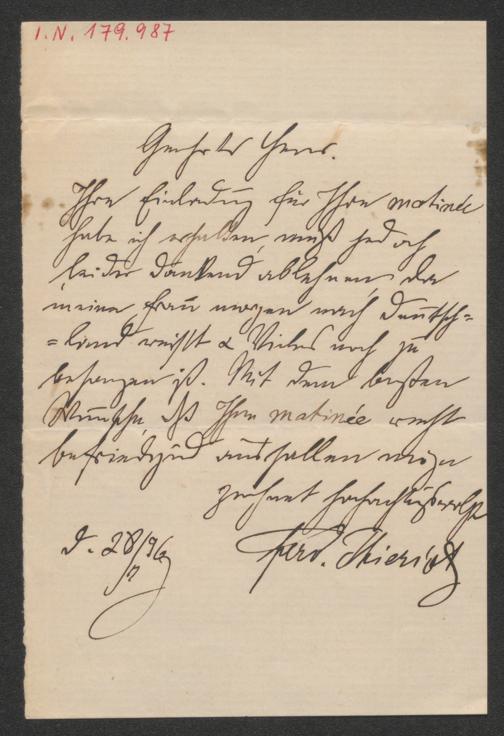 I.N. 179.987
Geehrter Herr.
Ihre Einladung für Ihre matinée
habe ich erhalten, muß jedoch
leider dankend ablehnen, da
meine Frau morgen nach Deutsch=
=land reist & Vieles noch zu
besorgen ist. Mit dem besten
Wunsche, daß Ihre matinée recht
befriedigend ausfallen möge
zeichnet hochachtungsvollst
d. 28/96 Ferd. Thieriot